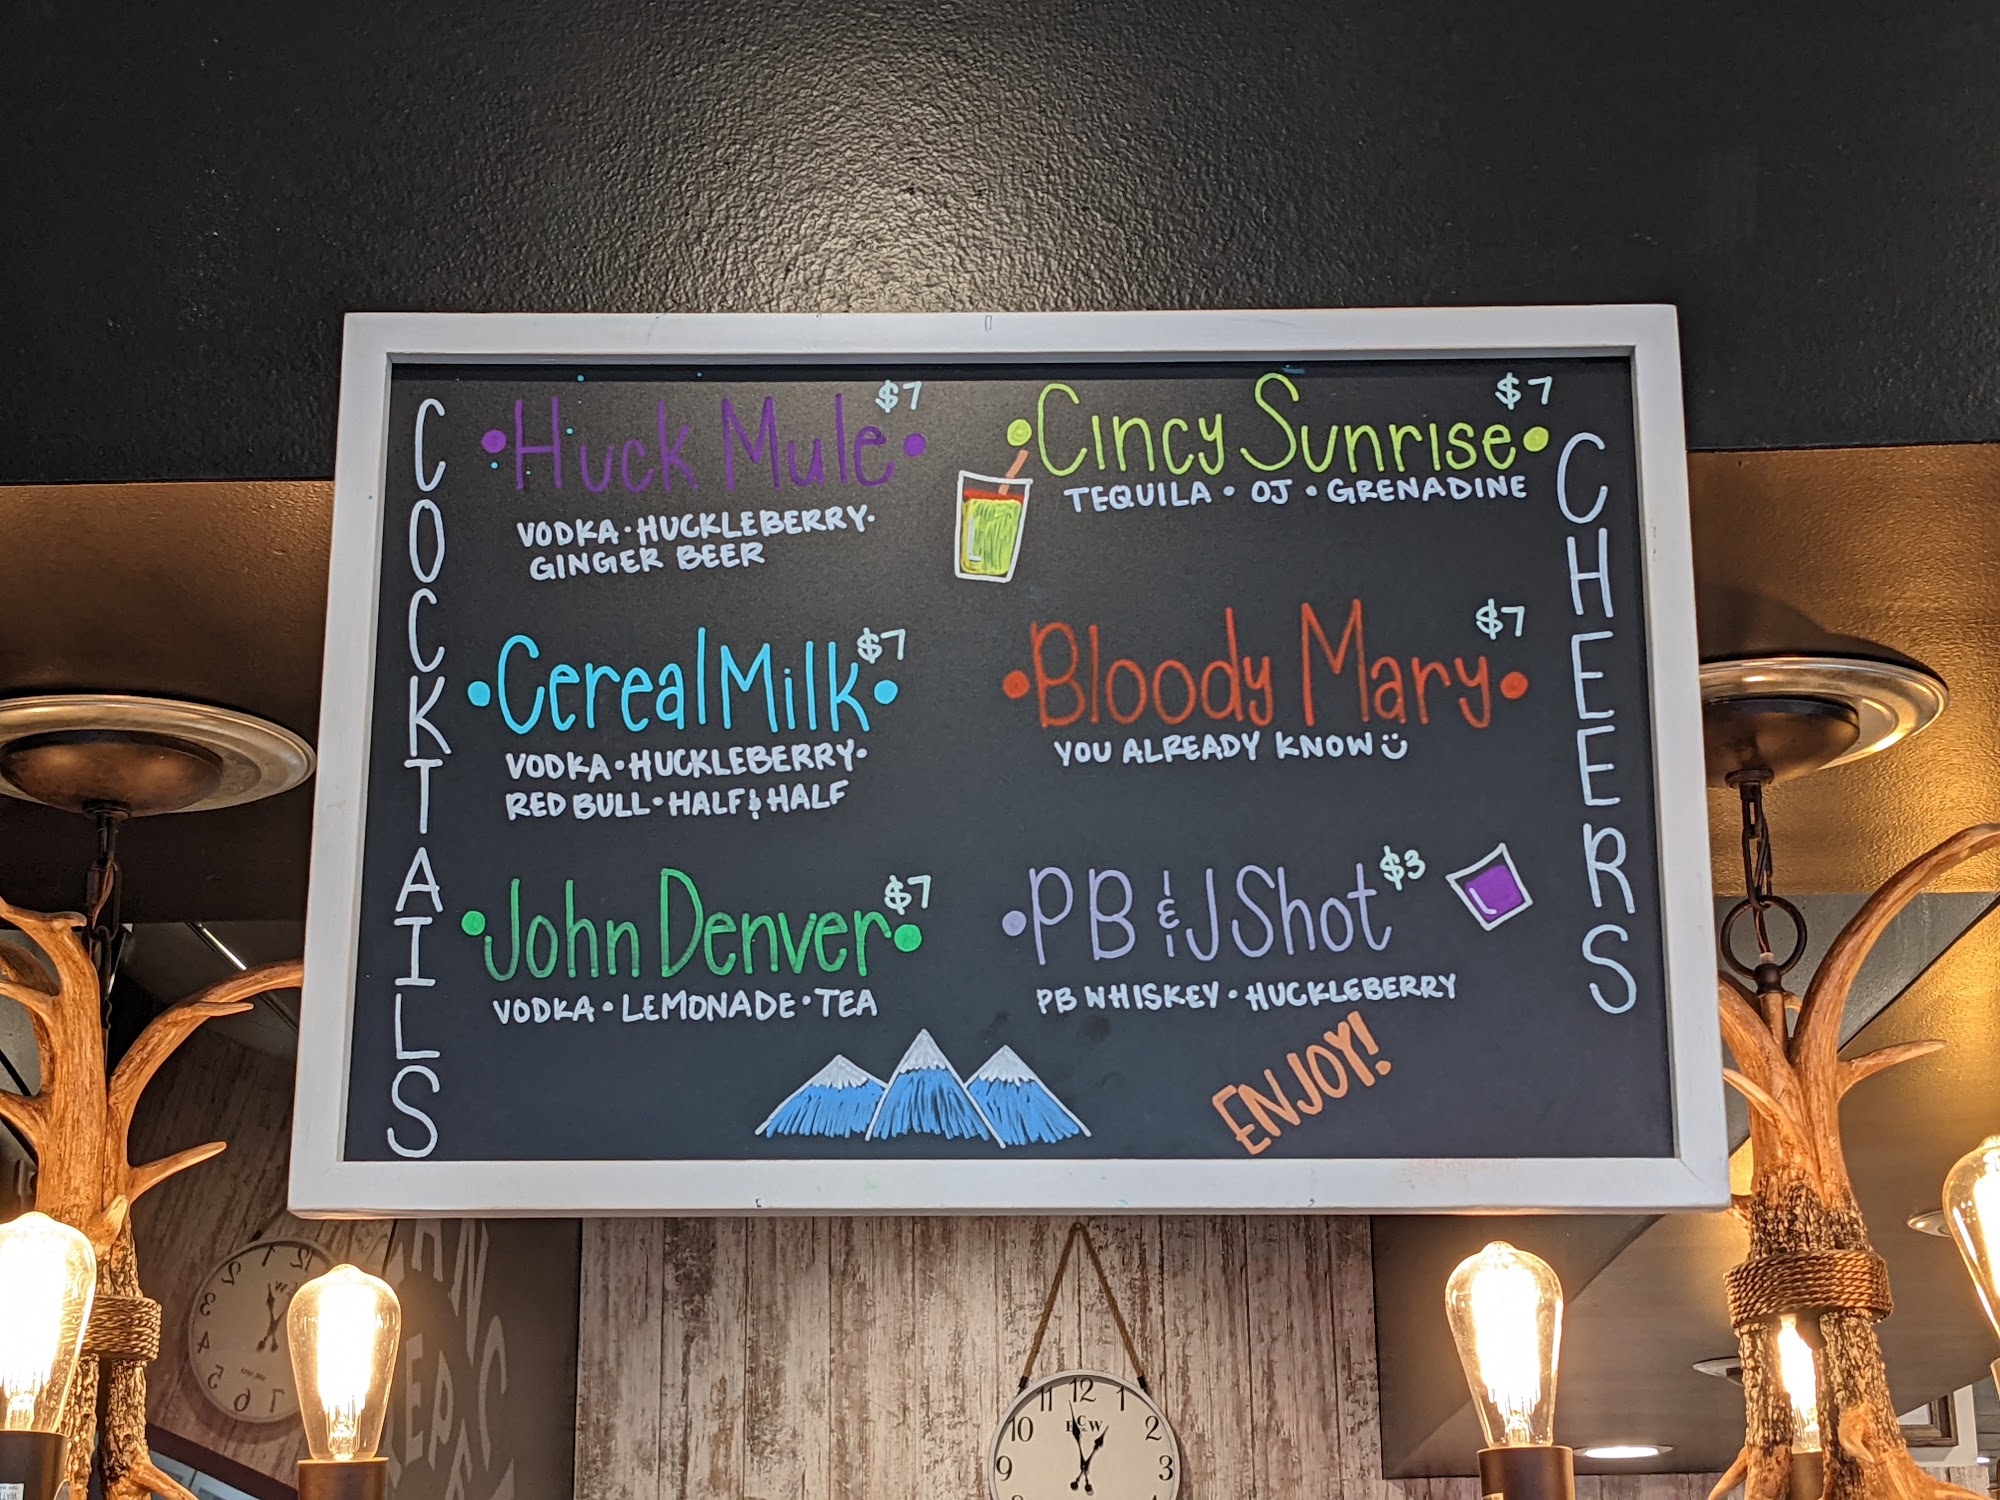 COCKTAILS
Huck Mule $7
VODKA · HUCKLEBERRY ·
GINGER BEER
Cereal Milk $7
VODKA · HUCKLEBERRY ·
RED BULL · HALF & HALF
John Denver $7
VODKA · LEMONADE · TEA
Cincy Sunrise $7
TEQUILA · OJ · GRENADINE
Bloody Mary $7
YOU ALREADY KNOW
PB & J Shot $3
PB WHISKEY · HUCKLEBERRY
ENJOY!
CHEERS
11 12 1
10 2
9 3